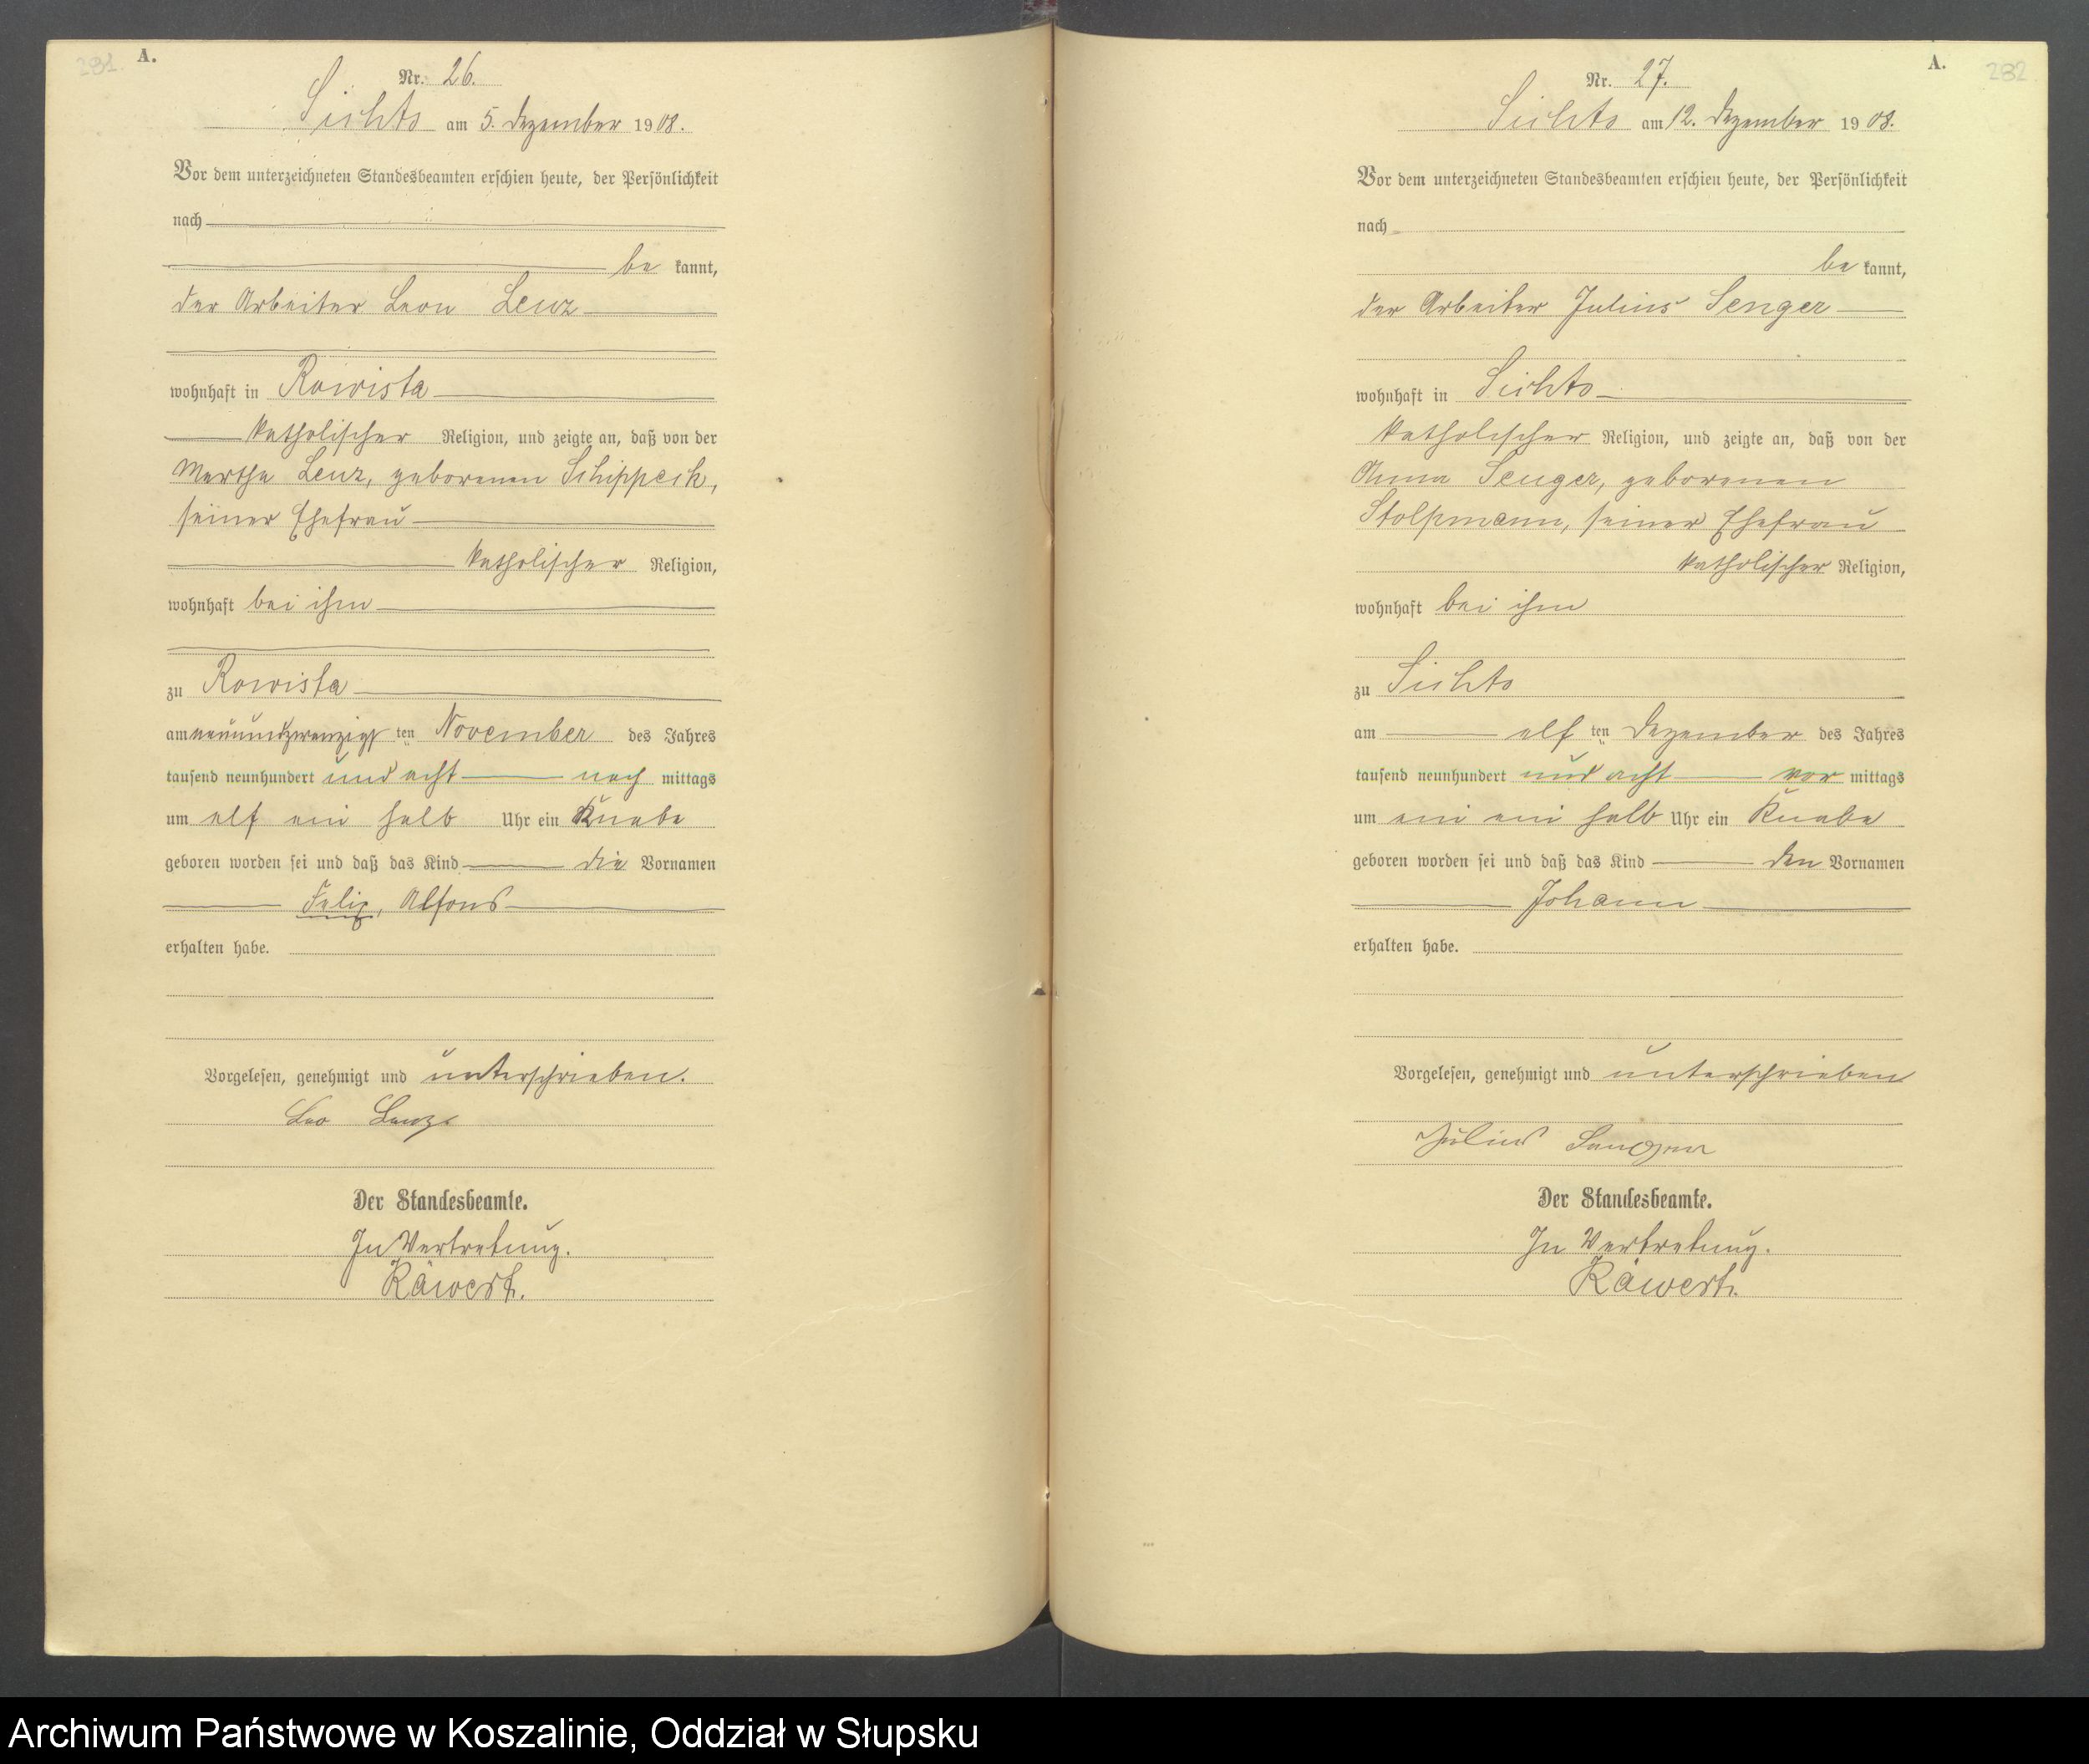 281.
A.
Nr. 26.
Sichts am 5. Dezember 1908.
Vor dem unterzeichneten Standesbeamten erschien heute, der Persönlichkeit
nach
be kannt,
der Arbeiter Leon Lenz
wohnhaft in Rowista
katholischer Religion, und zeigte an, daß von der
Martha Lenz, geborenen Schippeck,
seiner Ehefrau
katholischer Religion,
wohnhaft bei ihm
zu Rowista
am neunundzwanzigsten November des Jahres
tausend neunhundert und acht nach mittags
um elf ein halb Uhr ein Knabe
geboren worden sei und daß das Kind die Vornamen
Felix, Alfons
erhalten habe.
Vorgelesen, genehmigt und unterschrieben.
Leo Lenz
Der Standesbeamte.
In Vertretung.
Räwert.
A.
282
Nr. 27.
Sichts am 12. Dezember 1908.
Vor dem unterzeichneten Standesbeamten erschien heute, der Persönlichkeit
nach
be kannt,
der Arbeiter Julius Senger
wohnhaft in Sichts
katholischer Religion, und zeigte an, daß von der
Anna Senger, geborenen
Stolpmann, seiner Ehefrau
katholischer Religion,
wohnhaft bei ihm
zu Sichts
am elf ten Dezember des Jahres
tausend neunhundert und acht vor mittags
um ein ein halb Uhr ein Knabe
geboren worden sei und daß das Kind den Vornamen
Johann
erhalten habe.
Vorgelesen, genehmigt und unterschrieben
Julius Senger
Der Standesbeamte.
In Vertretung.
Räwert.
Archiwum Państwowe w Koszalinie, Oddział w Słupsku